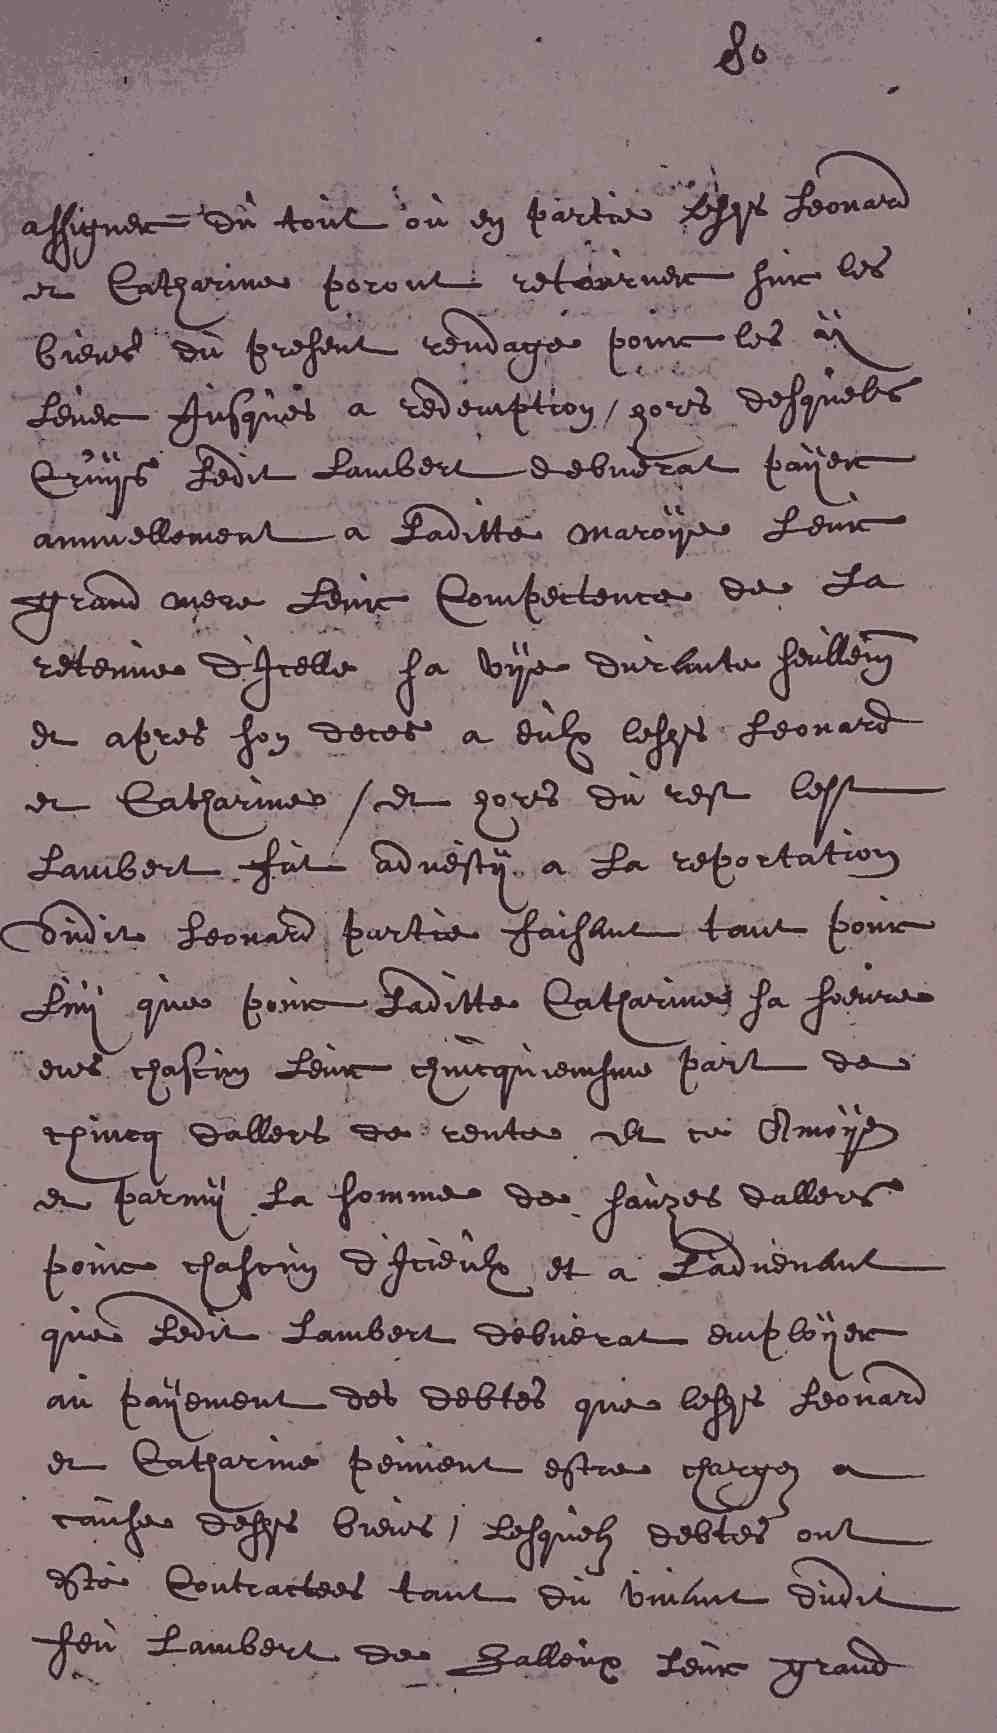 80
assigner du tout ou en partie lesqs Leonard
et Catharine poront retourner sur les
biens du present rendage pour les
lever jusques a redemption / hors desquels
Ledit Lambert debverat paÿer
annuellement a Laditte maroÿe Leur
grand mere Leur Competence de La
retenue d'Icelle sa vÿe durante seullem
et apres son deces a eulx lesqs Leonard
et Catharine / et hors du rest
Lambert fut advestÿ a La reportation
dudit Leonard partie faisant tant pour
Luÿ que pour Laditte Catharine sa soeure
chascun Leur chincquiemsme part de
chincq dallers de rente et ce
et parmÿ La somme de sauzes dallers
pour chascun d'Icieulx et a L'advenant
que Ledit Lambert debverat emploÿer
au paÿement des debtes que lesqs Leonard
et Catharine peuvent estre chargez a
cause desqs biens / Lesquelz debtes ont
esté Contractees tant du vivant dudit
feu Lambert de Zalleux Leur grand